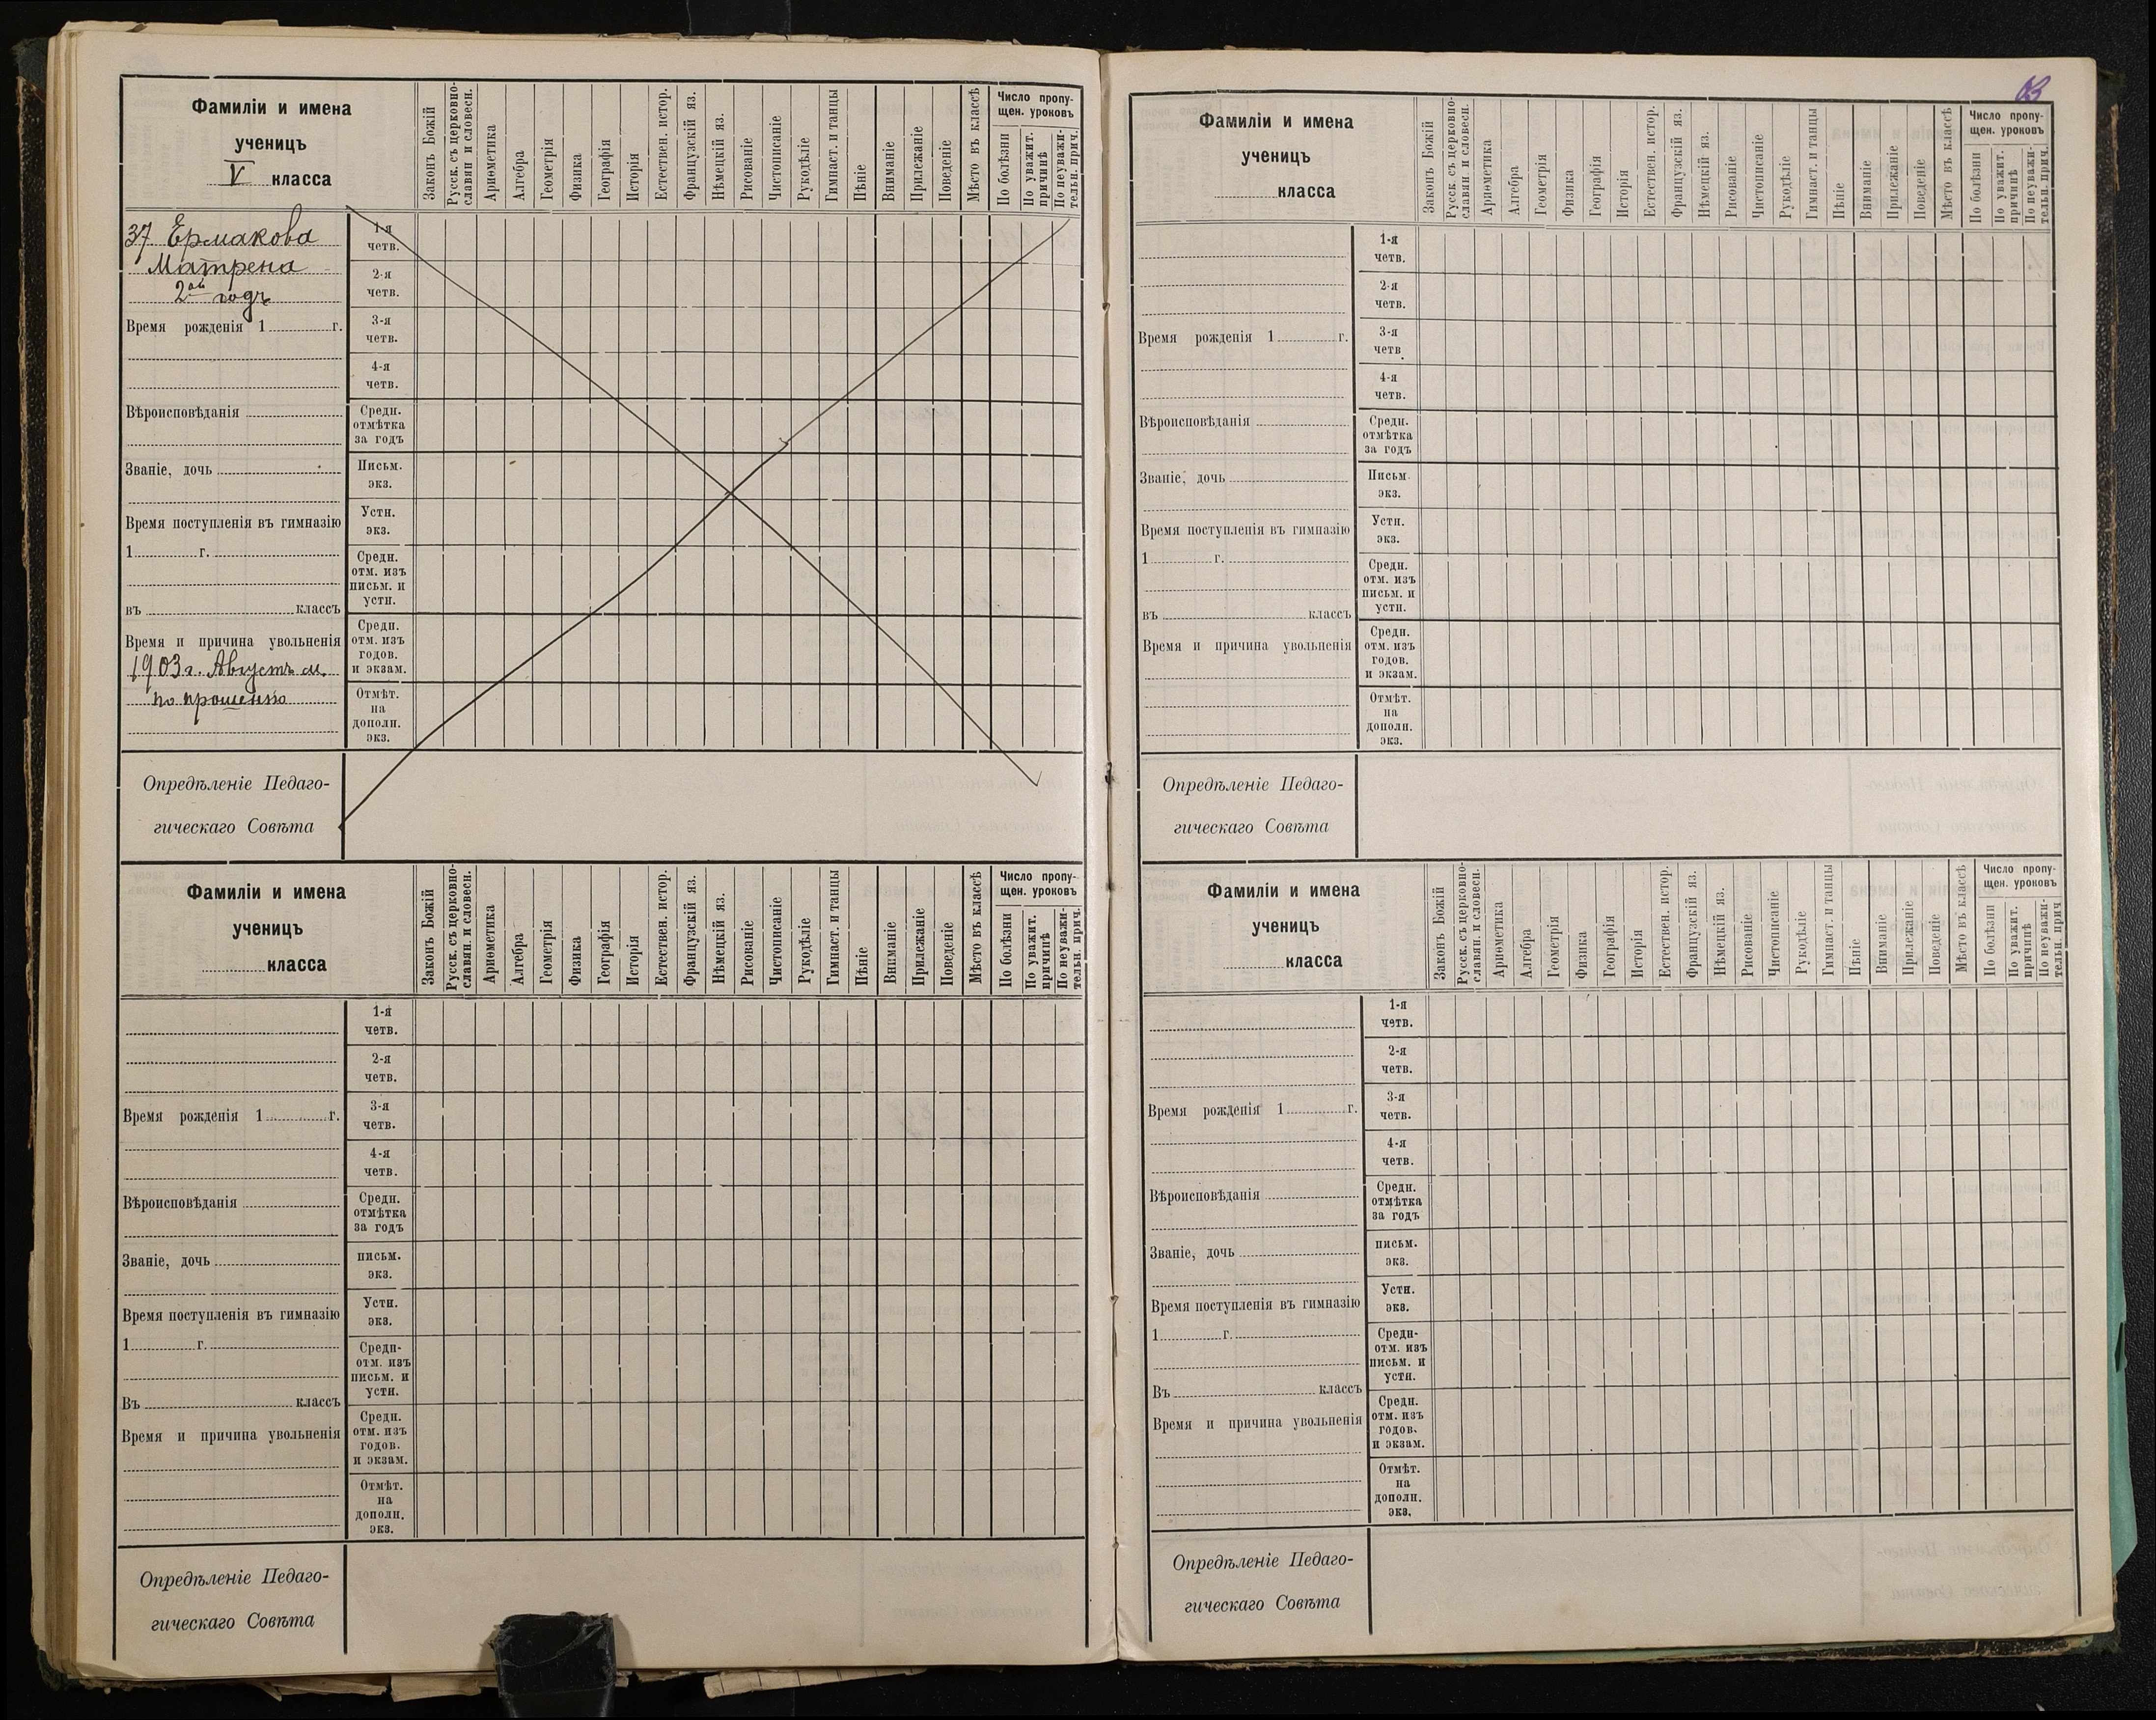 Фамиліи и имена
ученицъ
V класса
Законъ Божій
Русск. съ церковно-
славян и словесн.
Ариѳметика
Алгебра
Геометрія
Физика
Географія
Исторія
Естествен. истор.
Французскій яз.
Нѣмецкій яз.
Рисованіе
Чистописаніе
Рукодѣліе
Гимнаст. и танцы
Пѣніе
Вниманіе
Прилежаніе
Поведеніе
Мѣсто въ классѣ
Число пропу-
щен. уроковъ
По болѣзни
По уважит.
причинѣ
По неуважи-
тельн. прич.
37 Ермакова
Матрена
2ой годъ
Время рожденія 1 г.
Вѣроисповѣданія
Званіе, дочь
Время поступленія въ гимназію
1 г.
въ классъ
Время и причина увольненія
1903 г. Августъ м.
по прошенію
1-я
четв.
2-я
четв.
3-я
четв.
4-я
четв.
Средн.
отмѣтка
за годъ
Письм.
экз.
Устн.
экз.
Средн.
отм. изъ
письм. и
устн.
Средн.
отм. изъ
годов.
и экзам.
Отмѣт.
на
дополн.
экз.
Опредѣленіе Педаго-
гическаго Совѣта
Фамиліи и имена
ученицъ
класса
Законъ Божій
Русск. съ церковно-
славян. и словесн.
Ариѳметика
Алгебра
Геометрія
Физика
Географія
Исторія
Естествен. истор.
Французскій яз.
Нѣмецкій яз.
Рисованіе
Чистописаніе
Рукодѣліе
Гимнаст. и танцы
Пѣніе
Вниманіе
Прилежаніе
Поведеніе
Мѣсто въ классѣ
Число пропу-
щен. уроковъ
По болѣзни
По уважит.
причинѣ
По неуважи-
тельн. прич.
Время рожденія 1 г.
Вѣроисповѣданія
Званіе, дочь
Время поступленія въ гимназію
1 г.
Въ классъ
Время и причина увольненія
1-я
четв.
2-я
четв.
3-я
четв.
4-я
четв.
Средн.
отмѣтка
за годъ
письм.
экз.
Устн.
экз.
Средн-
отм. изъ
письм. и
устн.
Средн.
отм. изъ
годов.
и экзам.
Отмѣт.
на
дополн.
экз.
Опредѣленіе Педаго-
гическаго Совѣта
Фамиліи и имена
ученицъ
класса
Законъ Божій
Русск. съ церковно-
славян и словесн.
Ариѳметика
Алгебра
Геометрія
Физика
Географія
Исторія
Естествен. истор.
Французскій яз.
Нѣмецкій яз.
Рисованіе
Чистописаніе
Рукодѣліе
Гимнаст. и танцы
Пѣніе
Вниманіе
Прилежаніе
Поведеніе
Мѣсто въ классѣ
Число пропу-
щен. уроковъ
По болѣзни
По уважит.
причинѣ
По неуважи-
тельн. прич.
Время рожденія 1 г.
Вѣроисповѣданія
Званіе, дочь
Время поступленія въ гимназію
1 г.
въ классъ
Время и причина увольненія
1-я
четв.
2-я
четв.
3-я
четв.
4-я
четв.
Средн.
отмѣтка
за годъ
Письм.
экз.
Устн.
экз.
Средн.
отм. изъ
письм. и
устн.
Средн.
отм. изъ
годов.
и экзам.
Отмѣт.
на
дополн.
экз.
Опредѣленіе Педаго-
гическаго Совѣта
Фамиліи и имена
ученицъ
класса
Законъ Божій
Русск. съ церковно-
славян. и словесн.
Ариѳметика
Алгебра
Геометрія
Физика
Географія
Исторія
Естествен. истор.
Французскій яз.
Нѣмецкій яз.
Рисованіе
Чистописаніе
Рукодѣліе
Гимнаст. и танцы
Пѣніе
Вниманіе
Прилежаніе
Поведеніе
Мѣсто въ классѣ
Число пропу-
щен. уроковъ
По болѣзни
По уважит.
причинѣ
По неуважи-
тельн. прич
Время рожденія 1 г.
Вѣроисповѣданія
Званіе, дочь
Время поступленія въ гимназію
1 г.
Въ классъ
Время и причина увольненія
1-я
четв.
2-я
четв.
3-я
четв.
4-я
четв.
Средн.
отмѣтка
за годъ
письм.
экз.
Устн.
экз.
Средн-
отм. изъ
письм. и
устн.
Средн.
отм. изъ
годов.
и экзам.
Отмѣт.
на
дополн.
экз.
Опредѣленіе Педаго-
гическаго Совѣта